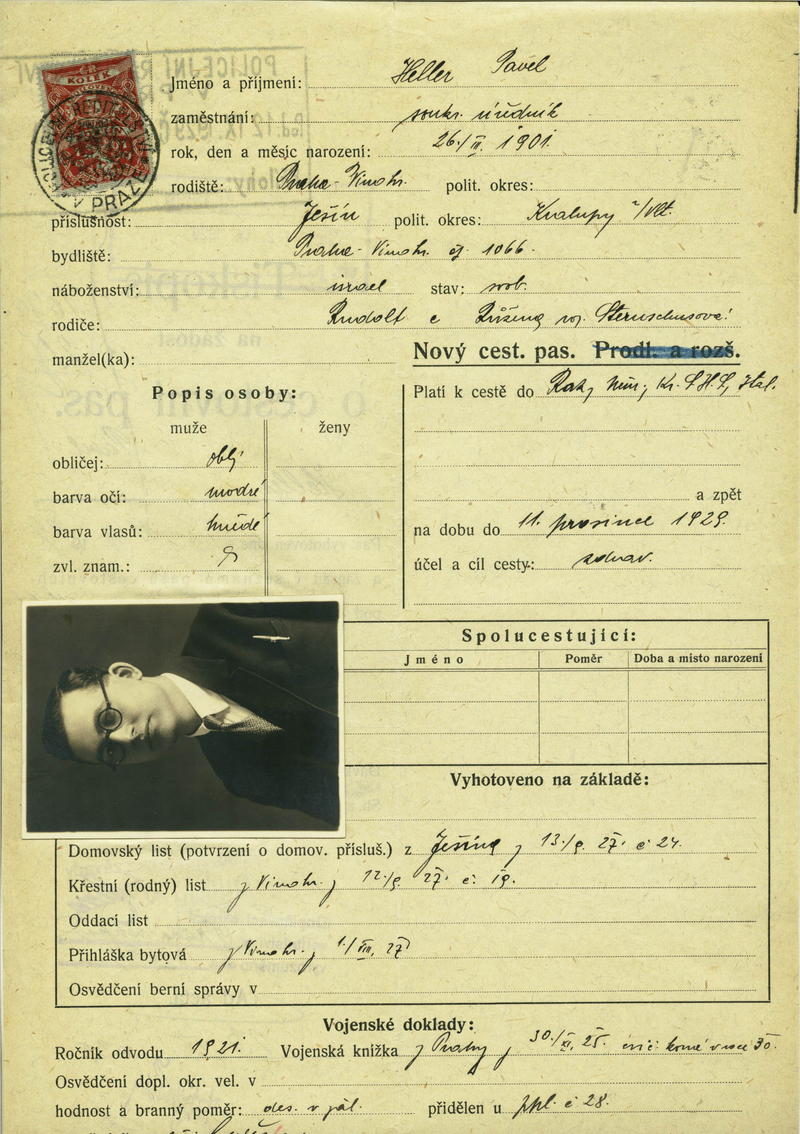 KOLEK
POLICEJNÍ ŘEDITELSTVÍ V PRAZE
Jméno a příjmení: Heller Pavel
zaměstnání: soukr. úředník
rok, den a měsíc narození: 26./III. 1901.
rodiště: Praha-Vinohr. polit. okres:
příslušnost: Ješín polit. okres: Kralupy n/Vlt.
bydliště: Praha-Vinohr. čj. 1066.
náboženství: israel stav: svob.
rodiče: Rudolf a Růžena roz. Sternschussová
manžel(ka):
Nový cest. pas. Prodl. a rozš.
Popis osoby:
muže ženy
obličej: oblý
barva očí: modré
barva vlasů: hnědé
zvl. znam.:
Platí k cestě do Rak, Něm., Kr. S.H.S., Ital.
a zpět
na dobu do 11. prosince 1929.
účel a cíl cesty: zdrav.
Spolucestující:
Jméno Poměr Doba a místo narození
Vyhotoveno na základě:
Domovský list (potvrzení o domov. přísluš.) z Ješína z 13./9. 27. č 24.
Křestní (rodný) list z Vinohr. z 12./9. 27. č. 19.
Oddací list
Přihláška bytová z Vinohr. z 1./VIII. 27
Osvědčení berní správy v
Vojenské doklady:
Ročník odvodu 1921. Vojenská knížka z Prahy z 30./XI. 25.
Osvědčení dopl. okr. vel. v
hodnost a branný poměr: des. v zál. přidělen u pěl. č 28.